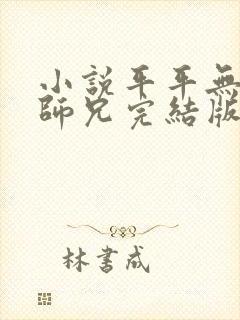 小說平平無
師兄完結版
林書成